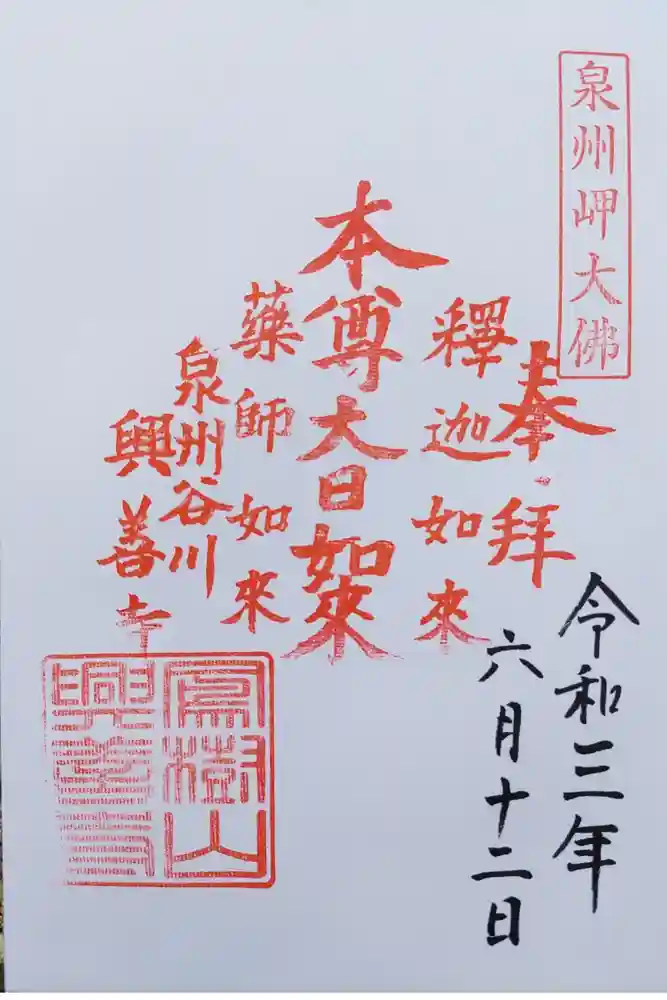 泉州岬大佛
奉拜
釋迦如來
本尊大日如來
藥師如來
泉州谷川
興善寺
令和三年
六月十二日